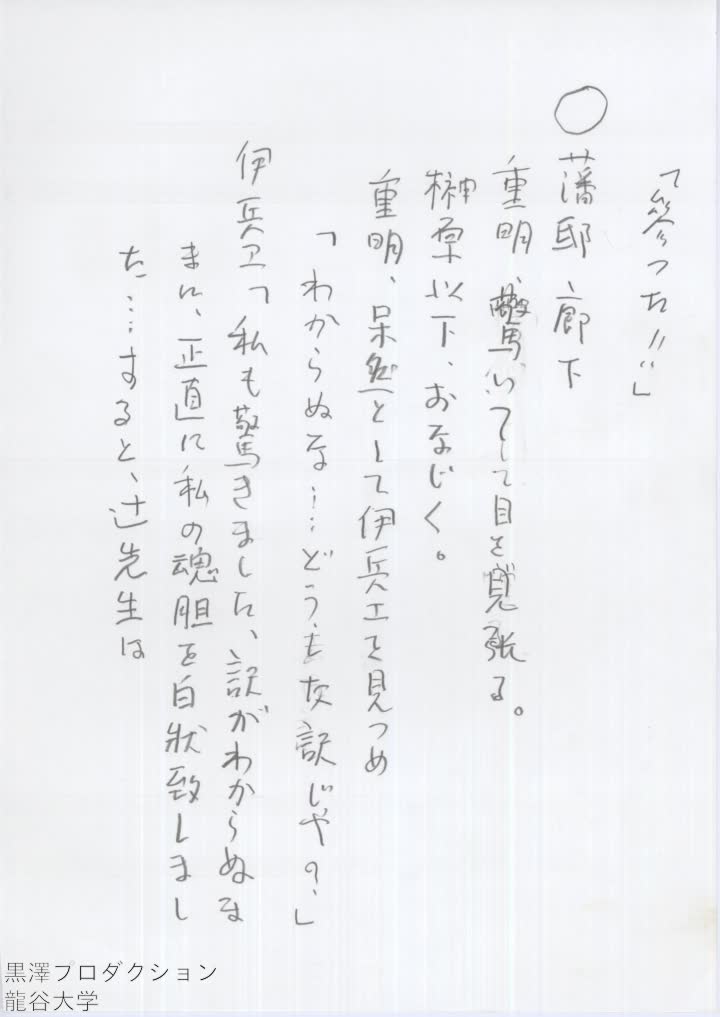 「参った!!」
○藩邸、廊下
重明、驚いて目を見張る。
榊原以下、おなじく。
重明、呆然として伊兵エを見つめ
「わからぬな…どうもな訳じゃの、」
伊兵エ「私も驚きました、訳がわからぬま
まに、正直に私の魂胆を白状致しまし
た…すると、辻先生は
黒澤プロダクション
龍谷大学